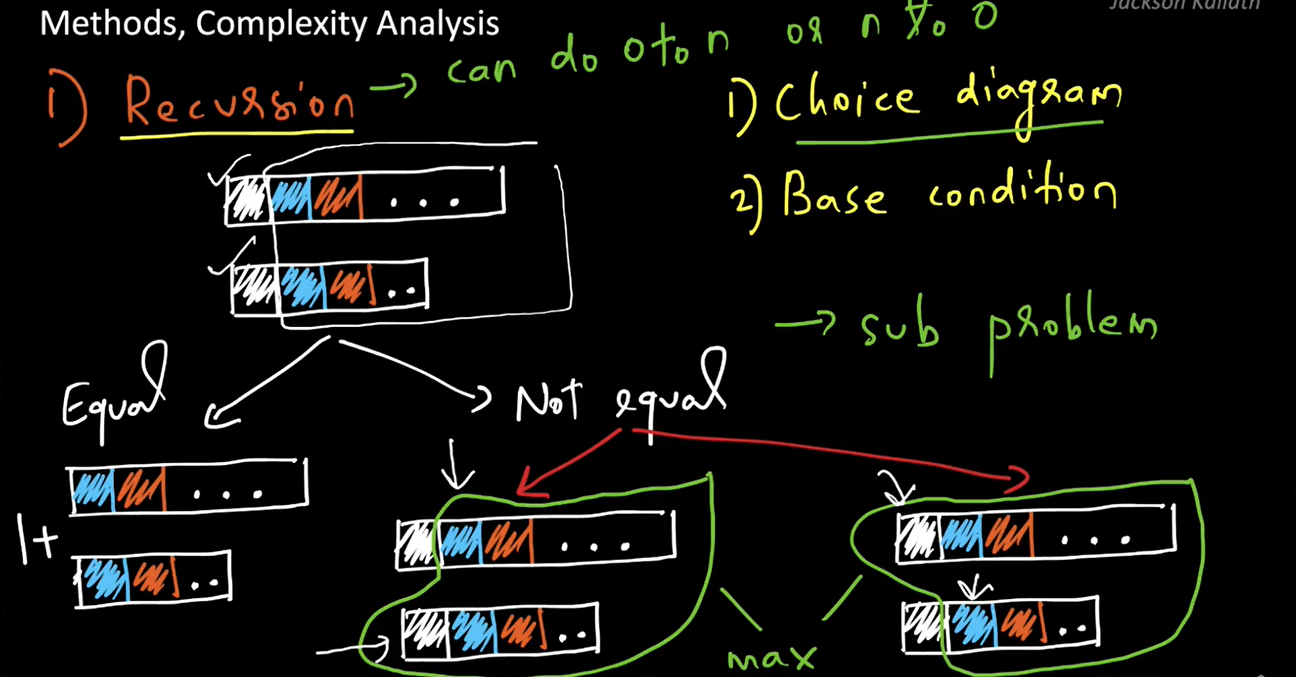 Methods, Complexity Analysis
Jackson Kailath
1) Recursion → can do 0 to n or n to 0
1) Choice diagram
2) Base condition
→ sub problem
Equal
Not equal
1+
max